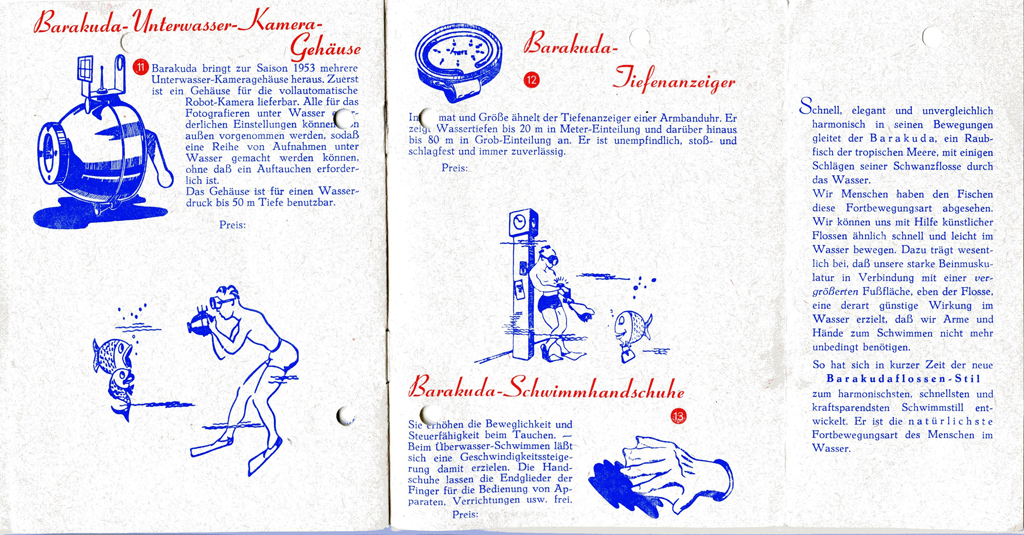 Barakuda-Unterwasser-Kamera-
Gehäuse
11 Barakuda bringt zur Saison 1953 mehrere
Unterwasser-Kameragehäuse heraus. Zuerst
ist ein Gehäuse für die vollautomatische
Robot-Kamera lieferbar. Alle für das
Fotografieren unter Wasser
derlichen Einstellungen können
außen vorgenommen werden, sodaß
eine Reihe von Aufnahmen unter
Wasser gemacht werden können,
ohne daß ein Auftauchen erforder-
lich ist.
Das Gehäuse ist für einen Wasser-
druck bis 50 m Tiefe benutzbar.
Preis:
Barakuda-
12
Tiefenanzeiger
mat und Größe ähnelt der Tiefenanzeiger einer Armbanduhr. Er
zeigt Wassertiefen bis 20 m in Meter-Einteilung und darüber hinaus
bis 80 m in Grob-Einteilung an. Er ist unempfindlich, stoß- und
schlagfest und immer zuverlässig.
Preis:
Barakuda-Schwimmhandschuhe
13
Sie erhöhen die Beweglichkeit und
Steuerfähigkeit beim Tauchen. —
Beim Überwasser-Schwimmen läßt
sich eine Geschwindigkeitssteige-
rung damit erzielen. Die Hand-
schuhe lassen die Endglieder der
Finger für die Bedienung von Ap-
paraten, Verrichtungen usw. frei.
Preis:
Schnell, elegant und unvergleichlich
harmonisch in seinen Bewegungen
gleitet der Barakuda, ein Raub-
fisch der tropischen Meere, mit einigen
Schlägen seiner Schwanzflosse durch
das Wasser.
Wir Menschen haben den Fischen
diese Fortbewegungsart abgesehen.
Wir können uns mit Hilfe künstlicher
Flossen ähnlich schnell und leicht im
Wasser bewegen. Dazu trägt wesent-
lich bei, daß unsere starke Beinmusku-
latur in Verbindung mit einer ver-
größerten Fußfläche, eben der Flosse,
eine derart günstige Wirkung im
Wasser erzielt, daß wir Arme und
Hände zum Schwimmen nicht mehr
unbedingt benötigen.
So hat sich in kurzer Zeit der neue
Barakudaflossen-Stil
zum harmonischsten, schnellsten und
kraftsparendsten Schwimmstill ent-
wickelt. Er ist die natürlichste
Fortbewegungsart des Menschen im
Wasser.